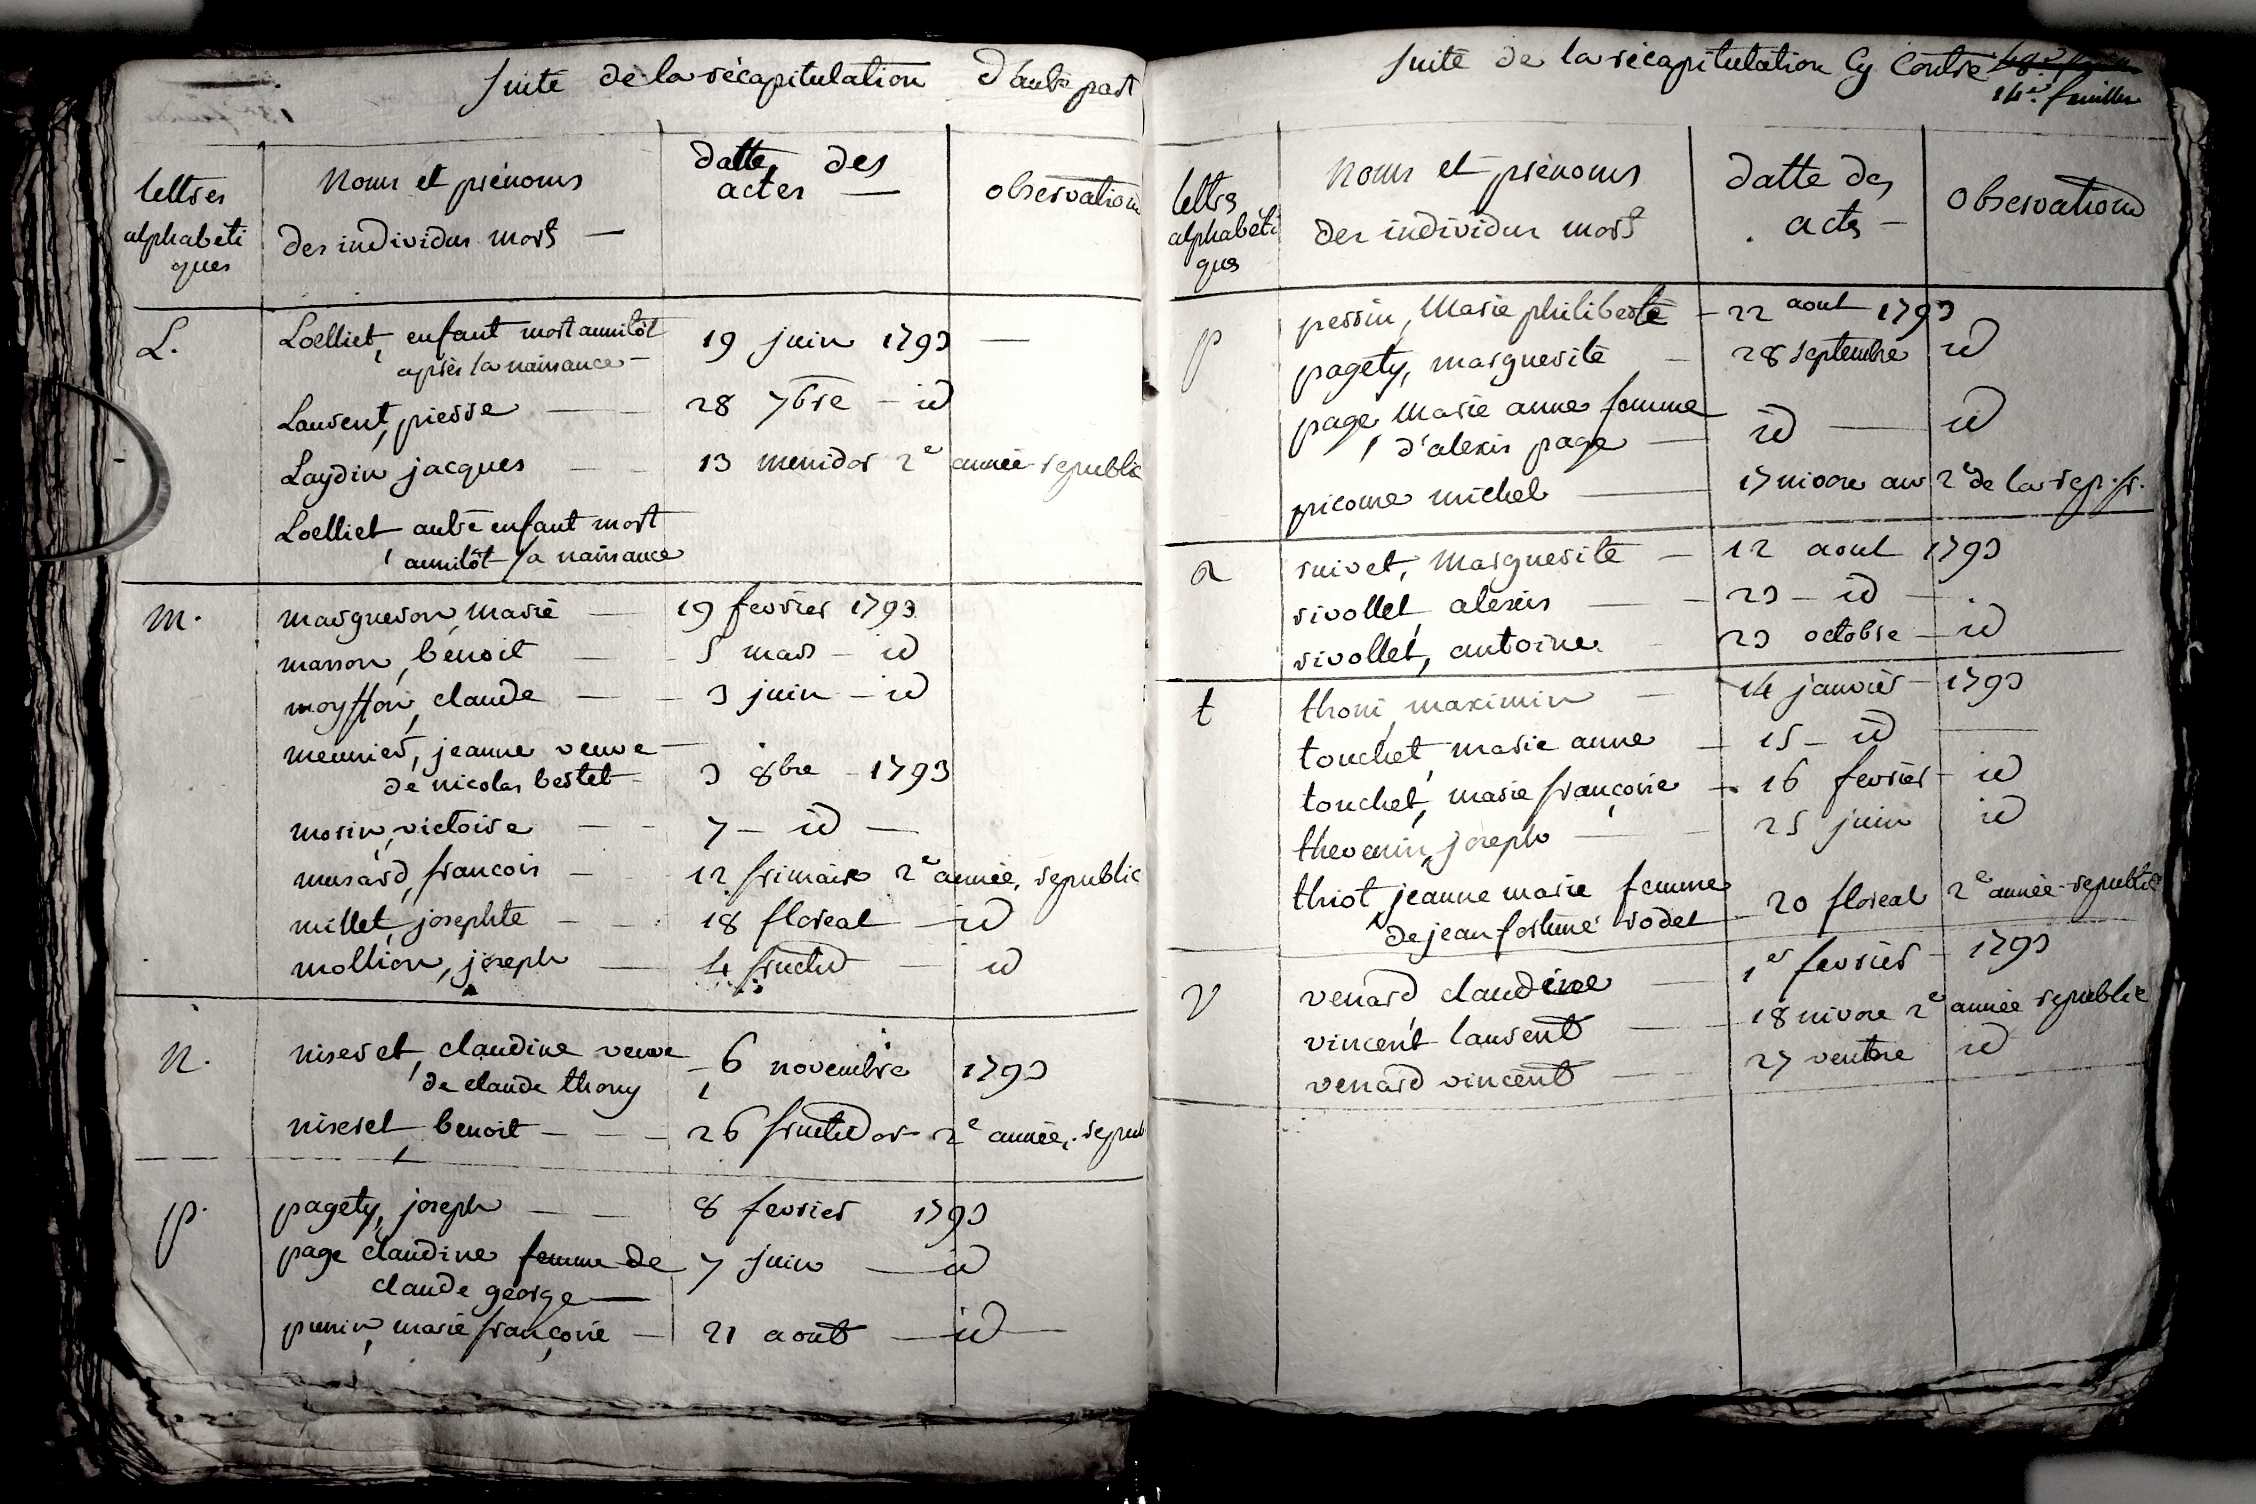 Suite de la récapitulation d'autre part
lettres alphabéti ques
Noms et prénoms des individus mort —
datte des actes —
observation
L. Loelliet, enfant mort aussitôt 19 juin 1793 —
après la naissance —
Laurent, pierre — 28 7bre — id
Laydin jacques — — 13 messidor 2e année republic
Loelliet autre enfant mort
aussitôt la naissance
M. margueron, marie — 19 fevrier 1793
masson, benoit — - 5 mars — id
moyffon, claude — — 3 juin — id
meunier, jeanne veuve —
de nicolas bertet - 3 8bre - 1793
morin, victoire — - 7 — id —
musard, francois — 12 frimaire 2e année, republic
millet, josephte — - 18 floreal — id
mollion, joseph — 4 fructid — id
n. niseret, claudine veuve - 6 novembre 1793
de claude thony
niseret, benoit — — — 26 fructidor 2e année, repub
p. pagety, joseph — — 8 fevrier 1793
page claudine femme de 7 juin — id
claude george —
punin, marie françoise — 21 aout — id —
Suite de la récapitulation Cy Contre
14e. feuillet
lettrs alphabéti ques
Noms et prénoms des individus mort
datte des acts —
observations
p pessin, Marie philiberte — 22 aout 1793
pagety, marguerite — 28 septembre id
page, Marie anne femme
d'alexis page — id — id
picome michel — 17 nivose an 2e de la rep. fr.
R ruivet, Marguerite — 12 aout 1793
rivollet, alexis — — 23 — id —
rivollet, antoine. - 23 octobre — id
t thoni, maximin — 14 janvier — 1793
touchet, marie anne — 15 — id —
touchet, marie françoise — 16 fevrier — id
thevenin, joseph — - 25 juin id
thiot, jeanne marie femme
de jean fortuné rodet — 20 floreal 2e année republic
V venard claudine — 1er fevrier — 1793
vincent laurent — - 18 nivose 2e année republic
venard vincent — - 27 ventose id